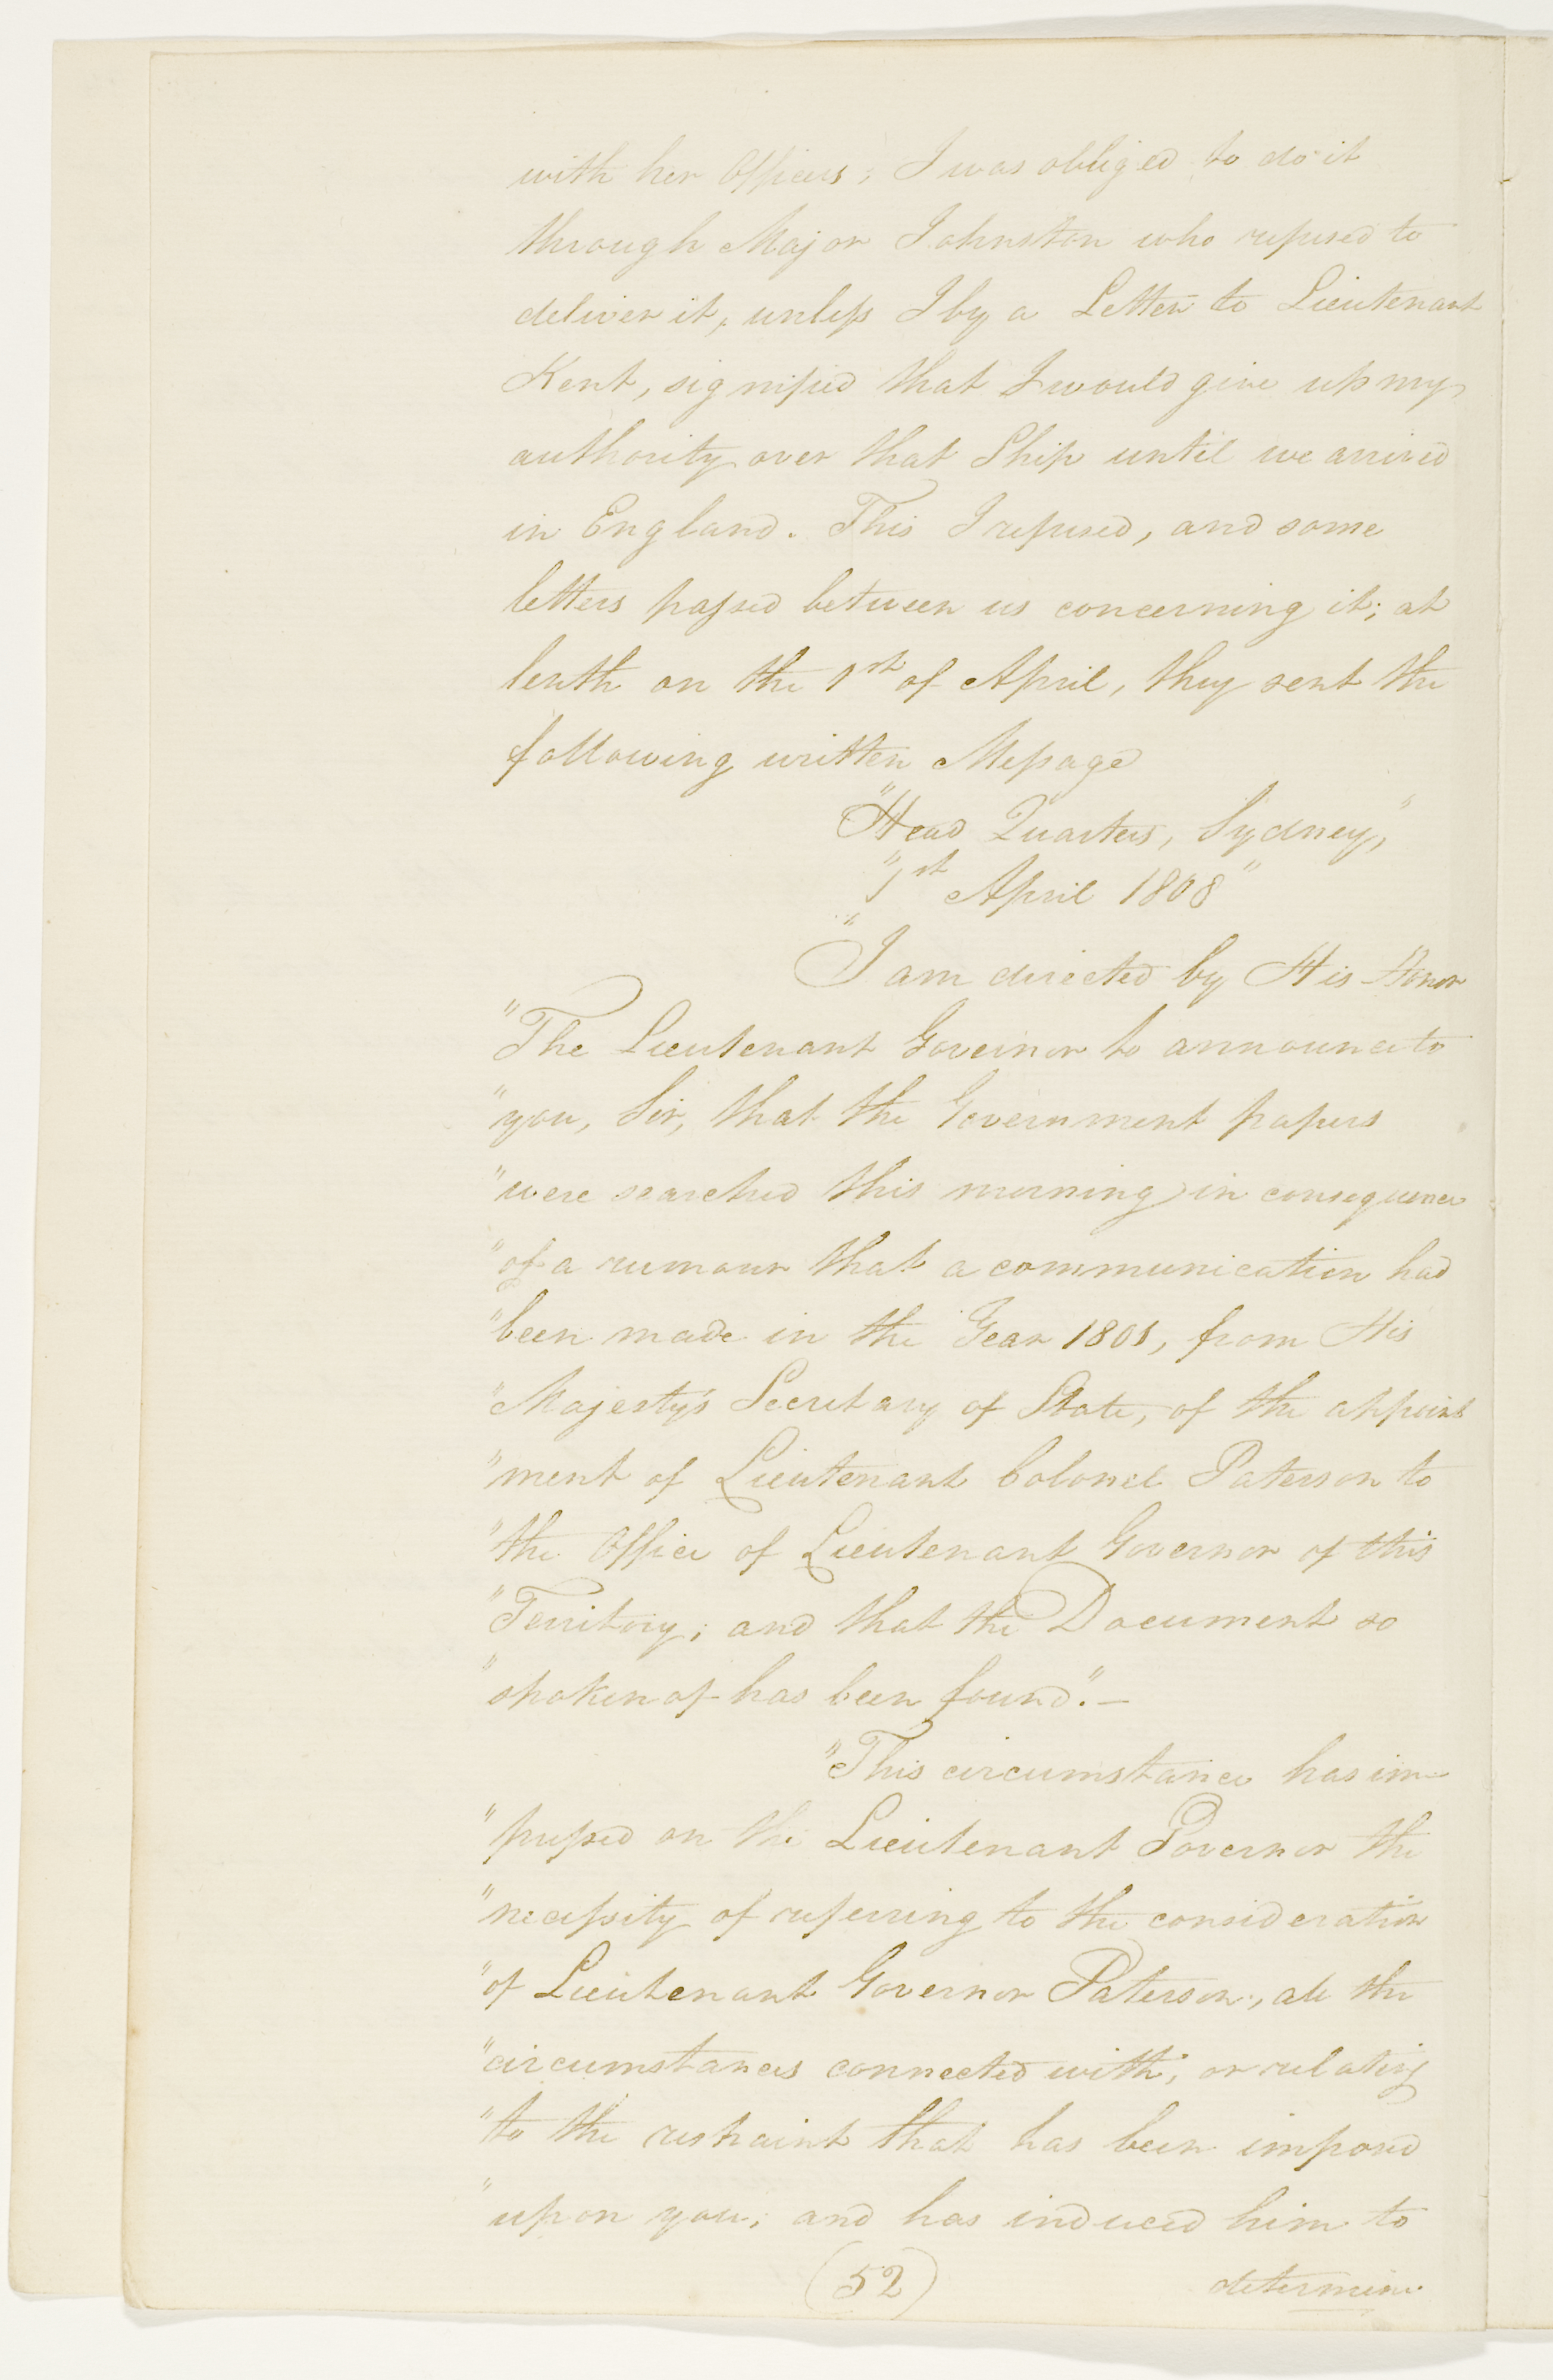 with her Officers; I was obliged to do it
through Major Johnston who refused to
deliver it, unless I by a Letter to Lieutenant
Kent, signified that I would give up my
authority over that Ship until we arrived
in England. This I refused, and some
letters passed between us concerning it; at
lenth on the 1st of April, they sent the
following written Message
"Head Quarters, Sydney,"
"1st April 1808"
"I am directed by His Honor
"The Lieutenant Governor to announce to
"you, Sir, that the Government papers
"were searched this morning in consequence
"of a rumour that a communication had
"been made in the Year 1801, from His
"Majesty's Secretary of State, of the appoint
"ment of Lieutenant Colonel Paterson to
"the Office of Lieutenant Governor of this
"Territory; and that the Document so
"spoken of has been found". –
"This circumstance has im-
"pressed on the Lieutenant Governor the
"necessity of referring to the consideration
"of Lieutenant Governor Paterson, all the
"circumstances connected with, or relating
"to the restraint that has been imposed
"upon you; and has induced him to
(52) determine